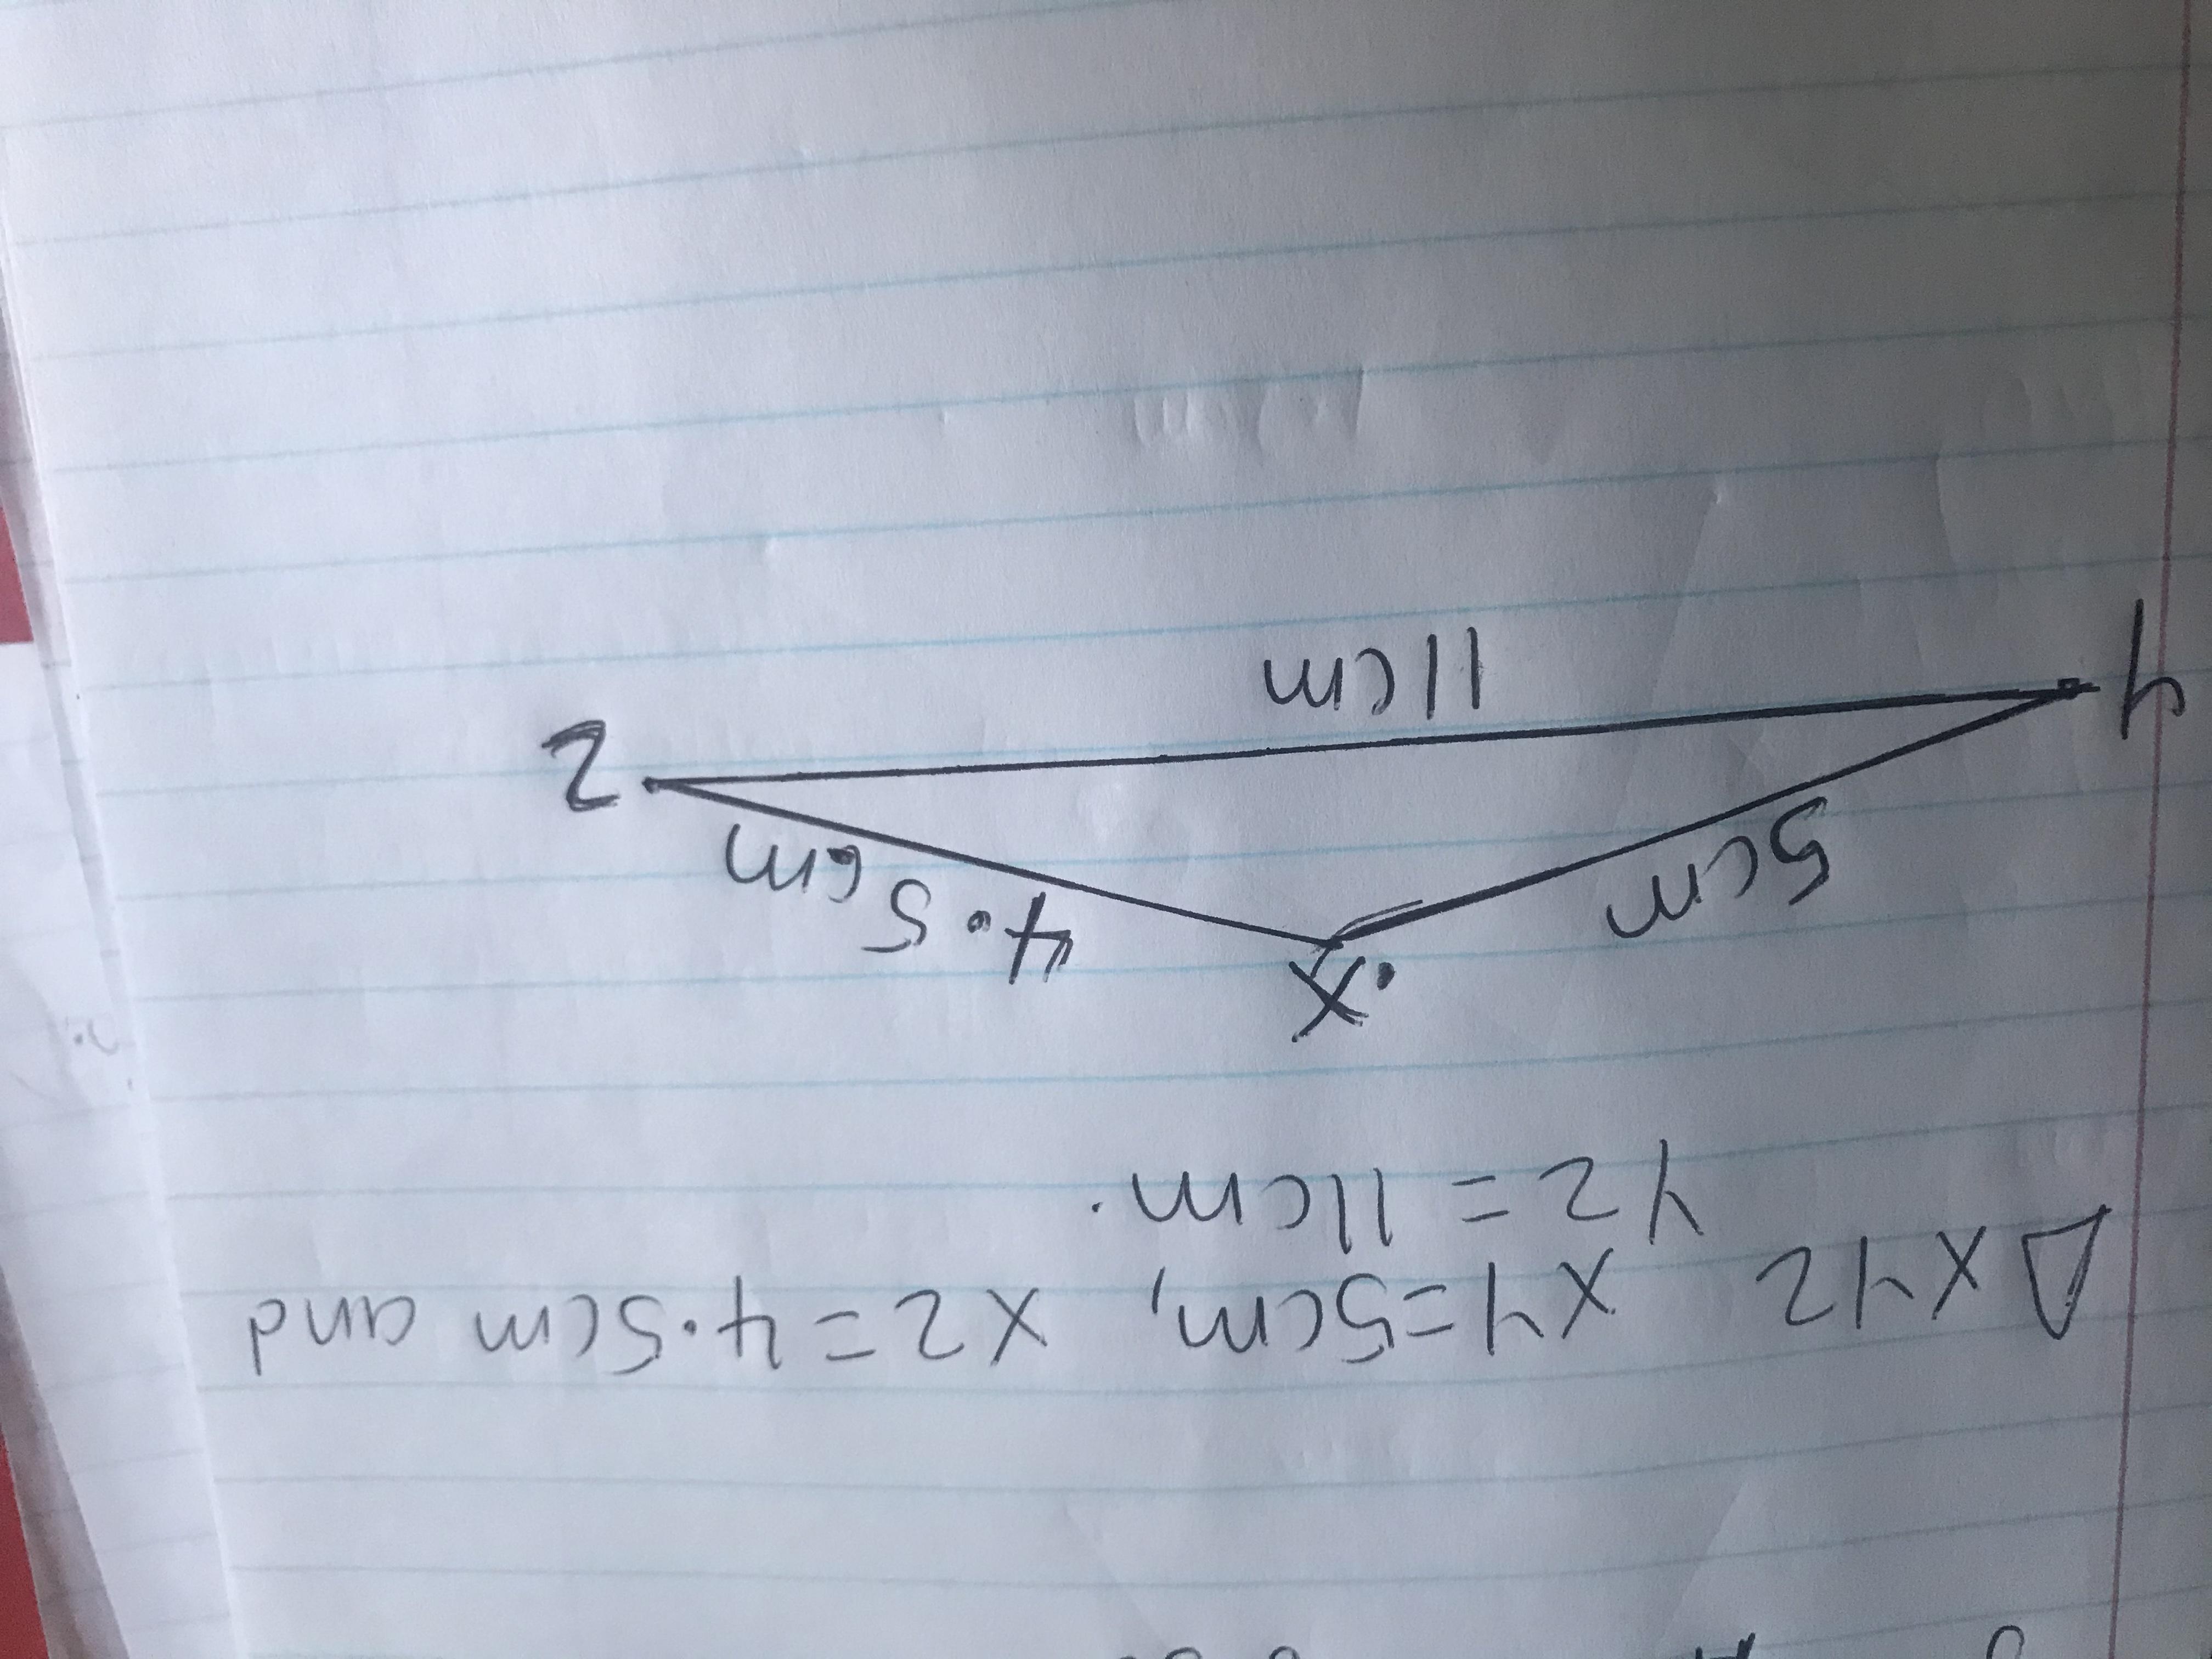 △XYZ XY=5cm, XZ=4.5cm and
YZ = 11cm.
X
5cm
4.5cm
Y
Z
11cm